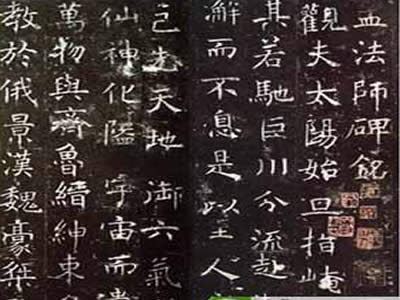 法師碑銘
觀夫太陽始旦指崦
其若馳巨川分流赴
澥而不息是以至人
己先天地御六氣
仙神化隘宇宙而
萬物與齊魯縉紳束
教於俄景漢魏豪桀